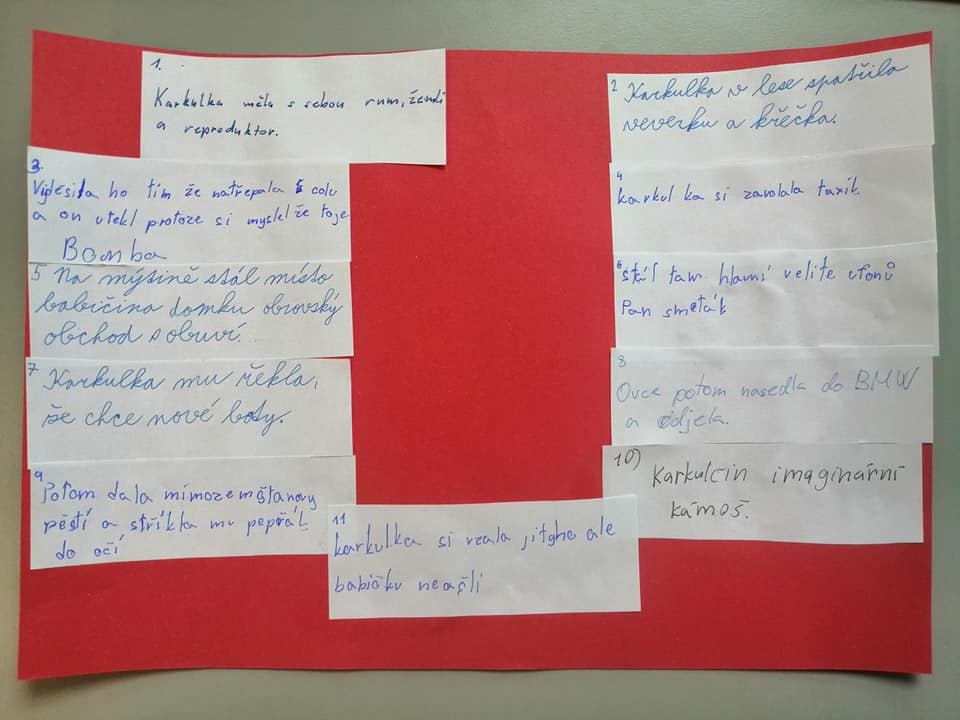 1.
Karkulka měla s sebou rum, žendi
a reproduktor.
2 Karkulka v lese spatřila
veverku a křečka.
3.
Vyděsila ho tím že natřepala colu
a on utekl protoze si myslel že to je
Bomba
4
karkulka si zavolala taxík
5 Na mýtině stál místo
babiččina domku obrovský
obchod s obuví.
6
stál tam hlavní velite ufonů
Pan smeták
7 Karkulka mu řekla,
že chce nové boty.
8
Ovce potom nasedla do BMW
a odjela.
9
Potom dala mimozemštanovy
pěstí a stříkla mu pepřák
do očí
10)
Karkulcin imaginární
kámoš.
11
karkulka si vzala jitgho ale
babičku neašli